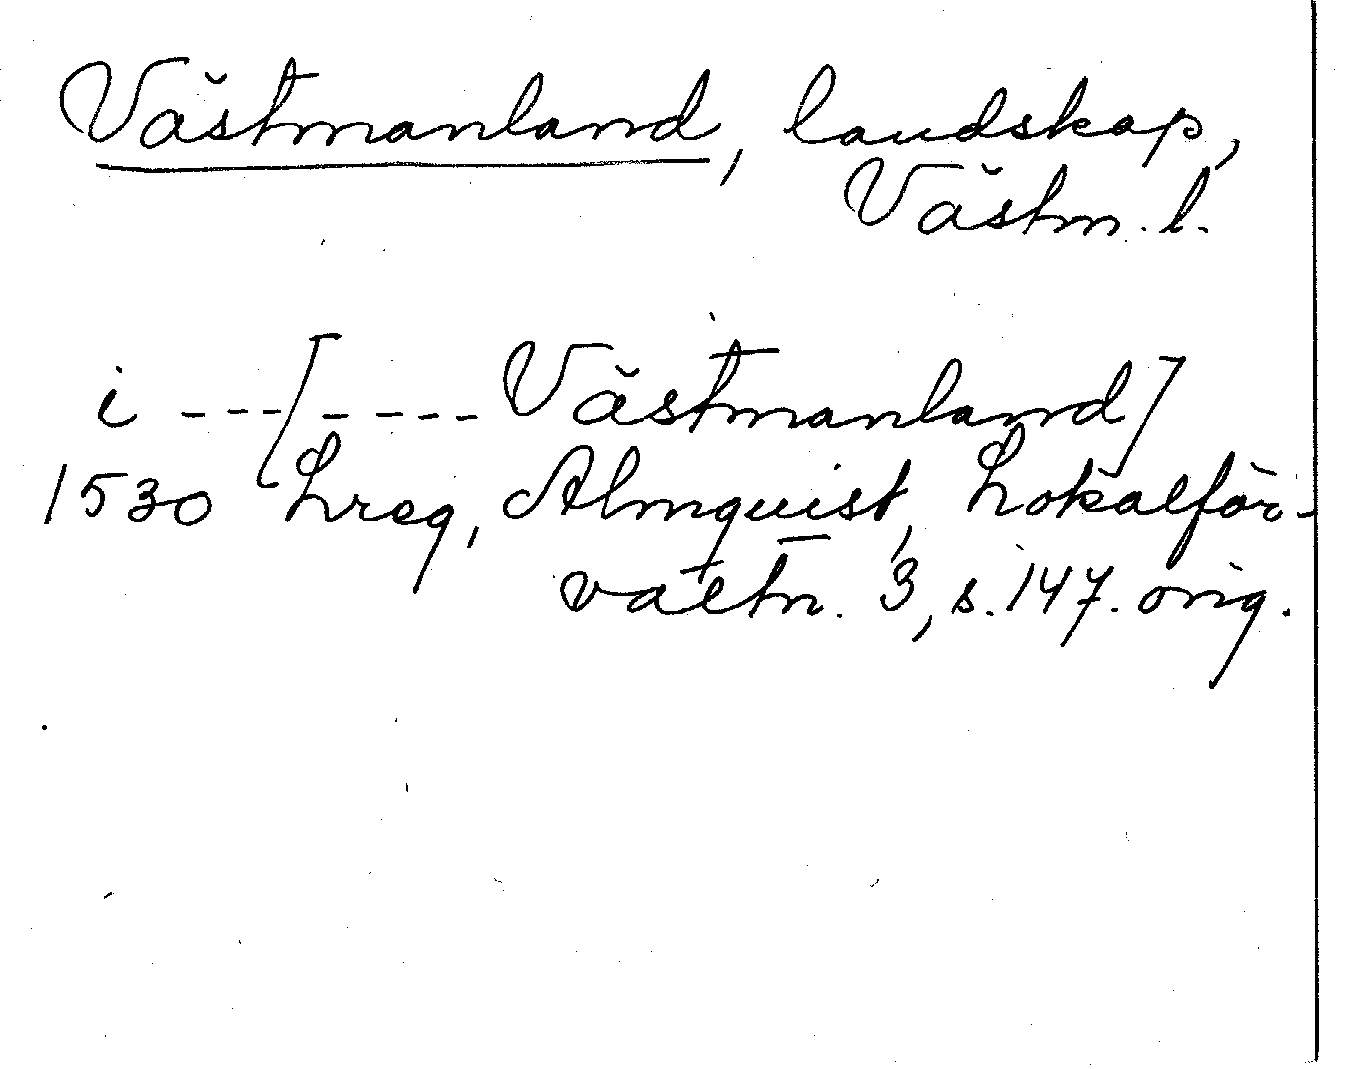 Västmanland, landskap,
Västm. l.
i ---[---- Västmanland]
1530 Lreg, Almquist, Lokalför-
valtn. 3, s. 147. orig.